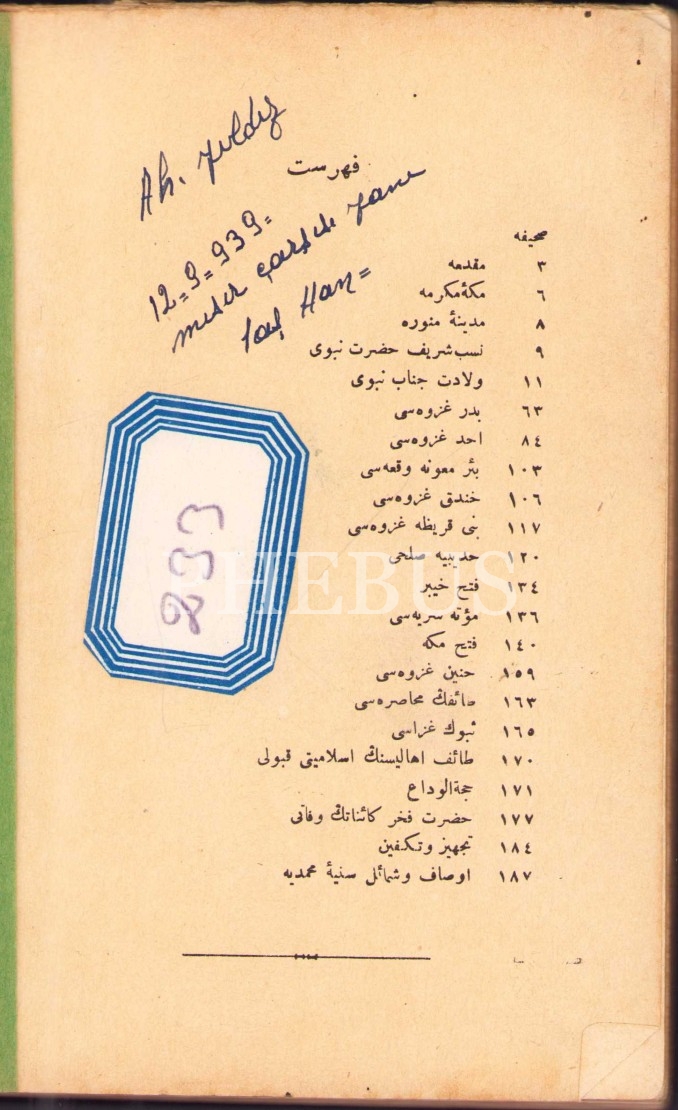 Ah. Yıldız
12=9=939=
mısır çarşısı yanı
Taş Han=
فهرست
صحيفه
٣ مقدمه
٦ مكۀ مكرمه
٨ مدينۀ منوره
٩ نسب شريف حضرت نبوى
١١ ولادت جناب نبوى
٦٣ بدر غزوه سى
٨٤ احد غزوه سى
١٠٣ بئر معونه وقعه سى
١٠٦ خندق غزوه سى
١١٧ بنى قريظه غزوه سى
١٢٠ حديبيه صلحى
١٣٤ فتح خيبر
١٣٦ مؤته سريه سى
١٤٠ فتح مكه
١٥٩ حنين غزوه سى
١٦٣ طائفك محاصره سى
١٦٥ تبوك غزاسى
١٧٠ طائف اهاليسنك اسلاميتى قبولى
١٧١ حجةالوداع
١٧٧ حضرت فخر كائناتك وفاتى
١٨٤ تجهيز وتكفين
١٨٧ اوصاف وشمائل سنيۀ محمديه
PHEBUS